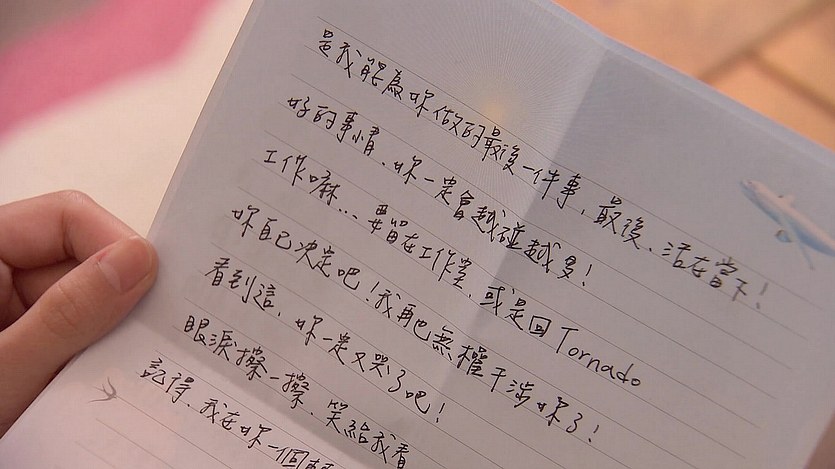 是我能為妳做的最後一件事，最後、活在當下！
好的事情，妳一定會越碰越多！
工作嘛…要留在工作室，或是回 Tornado
妳自己決定吧！我再也無權干涉妳了！
看到這，妳一定又哭了吧！
眼淚擦一擦，笑給我看
記得，我在妳一個